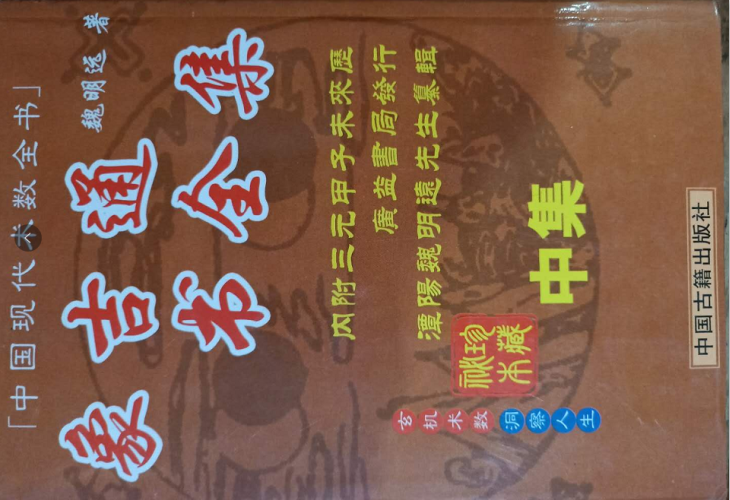 「中国现代术数全书」
魏明远 著
象吉通
书全集
内附三元甲子未來歷
廣益書局發行
潭陽魏明遠先生纂輯
珍藏
秘本
中集
玄机术数洞察人生
中国古籍出版社